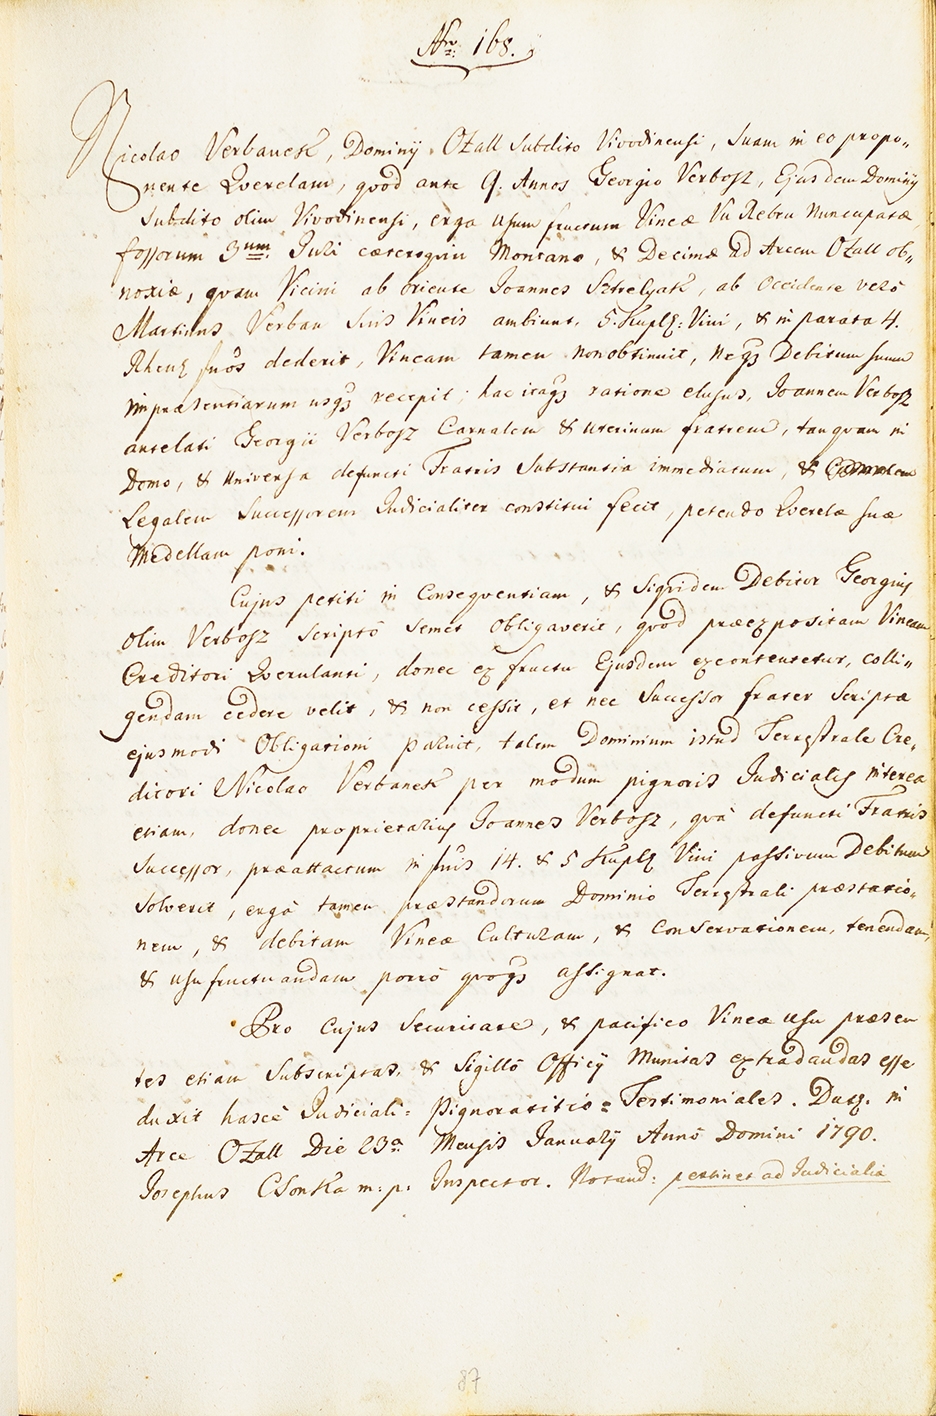 Nro 168.
Nicolao Verbanek, Dominÿ Ozall Subdito Vivodinensi, Suam in eo propo„
nente Qverelam, qvod ante 9. Annos Georgio Verbosz, Ejusdem Dominÿ
Subdito olim Vivodinensi, erga usum fructum Vineæ Vu Rebru Nuncupatæ
fossorum 3um. Juri cæteroqvin Montano, & Decimæ ad Arcem Ozall ob„
noxiæ, qvam Vicini ab oriente Joannes Strelyak, ab Occidente verò
Martinus Verban Suis Vineis ambiunt, 5. Kuplʒ: Vini, & in parata 4.
Rhenʒ suos dederit, Vineam tamen non obtinuit, neqʒ Debitum suum
impræsentiarum usqʒ recepit; hac itaqʒ ratione elusus, Joannem Verbosz
antelati Georgii Verbosz Carnalem & uterinum fratrem, tanquam in
Domo, & universa defuncti Fratris Substantia immediatum, &
Legalem Successorem Judicialiter constitui fecit, petendo Qverelæ suæ
Medellam poni.
Cujus petiti in Conseqventiam, & Siqvidem Debitor Georgius
olim Verbosz Scriptô Semet obligaverit, qvod præexpositam Vineam
Creditori Qverulanti, donec ex fructu Ejusdem excontentetur, colli„
gendam cedere velit, & non cessit, et nec Successor frater Scriptæ
ejusmodi Obligationi paruit, talem Dominium istud Terrestrale Cre„
ditori Nicolao Verbanek per modum pignoris Judicialis interea
etiam, donec proprietarius Joannes Verbosz, qvà defuncti Fratris
Successor, præattactum in suis 14. & 5 Kuplʒ Vini passivum Debitum
Solverit, ergà tamen præstandorum Dominio Terrestrali præstatio„
nem, & debitam Vineæ Culturam, & Conservationem, tenendam,
& usufructuandam porrò qvoqʒ assignat.
Pro Cujus Securitate, & pacifico Vineæ usu præsen
tes etiam Subscriptas, & Sigillô Officÿ Munitas extradandas esse
duxit hasce Judiciali= Pignoratitio= Testimoniales. Datʒ. in
Arce Ozall Die 23a. Mensis Januarÿ Annô Domini 1790.
Josephus Csonka m: p: Inspector. Notand: pertinet ad Judicialia
87